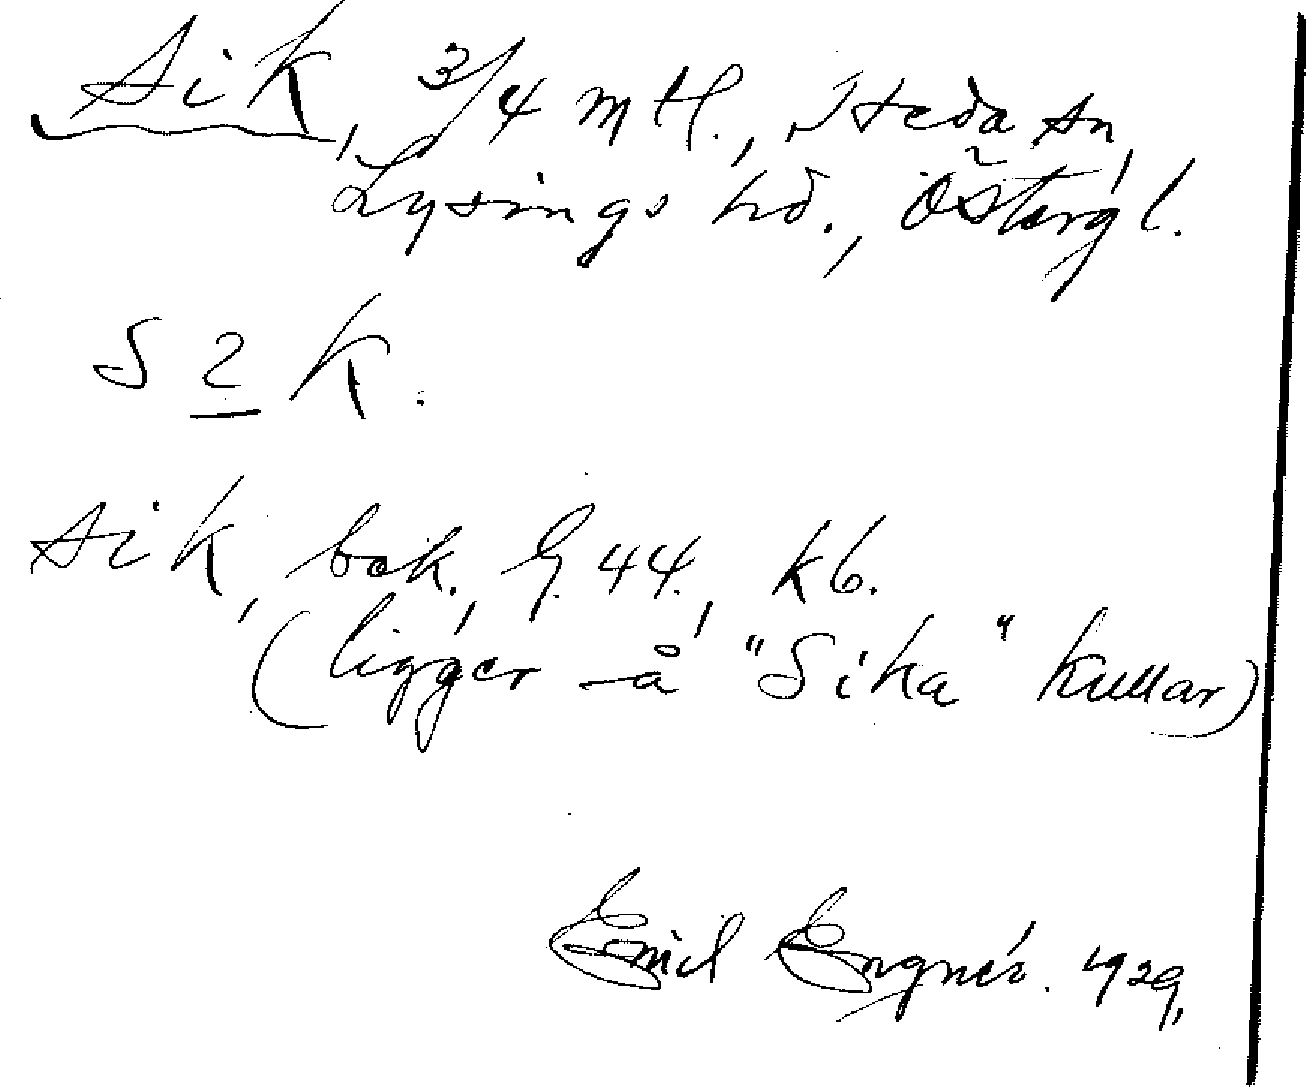 Sik, 3/4 mtl., Heda sn,
Lysings hd., Östergl.
S2k.
Sik, bok., G. 44, kb.
(ligger å "Sika" kullar)
Emil Engnér. 1929,